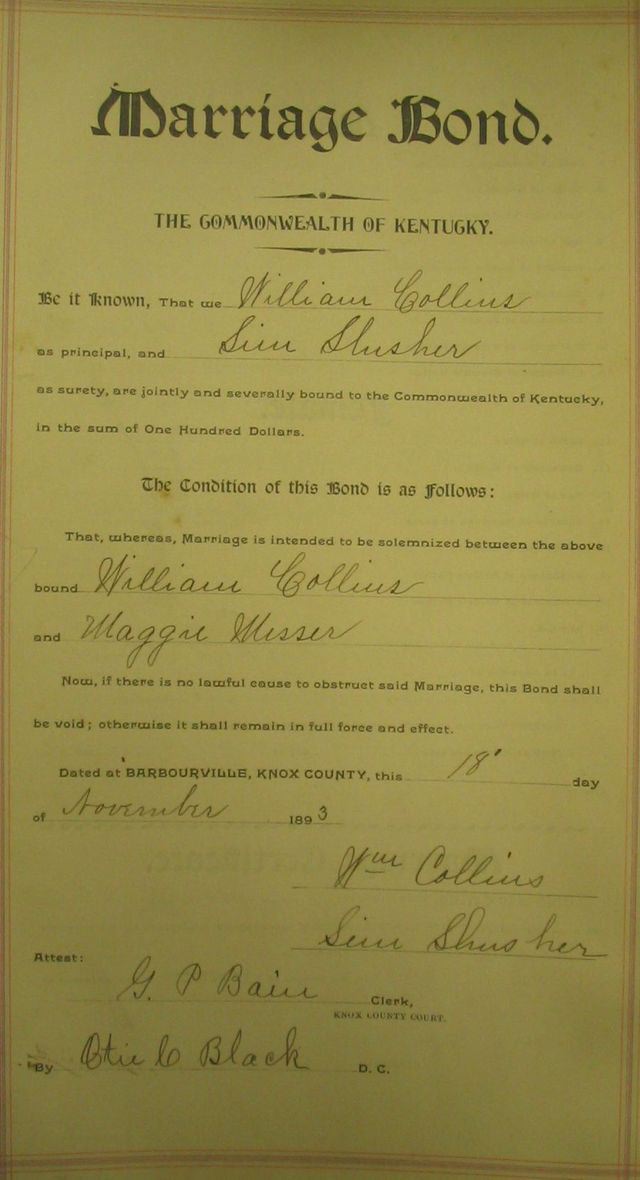 Marriage Bond.
THE COMMONWEALTH OF KENTUCKY.
Be it Known, That we William Collins
as principal, and Sim Slusher
as surety, are jointly and severally bound to the Commonwealth of Kentucky,
in the sum of One Hundred Dollars.
The Condition of this Bond is as Follows:
That, whereas, Marriage is intended to be solemnized between the above
bound William Collins
and Maggie Messer
Now, if there is no lawful cause to obstruct said Marriage, this Bond shall
be void; otherwise it shall remain in full force and effect.
Dated at BARBOURVILLE, KNOX COUNTY, this 18 day
of November 1893
Wm Collins
Sim Slusher
Attest:
G. P Bain Clerk,
KNOX COUNTY COURT.
By Black D. C.